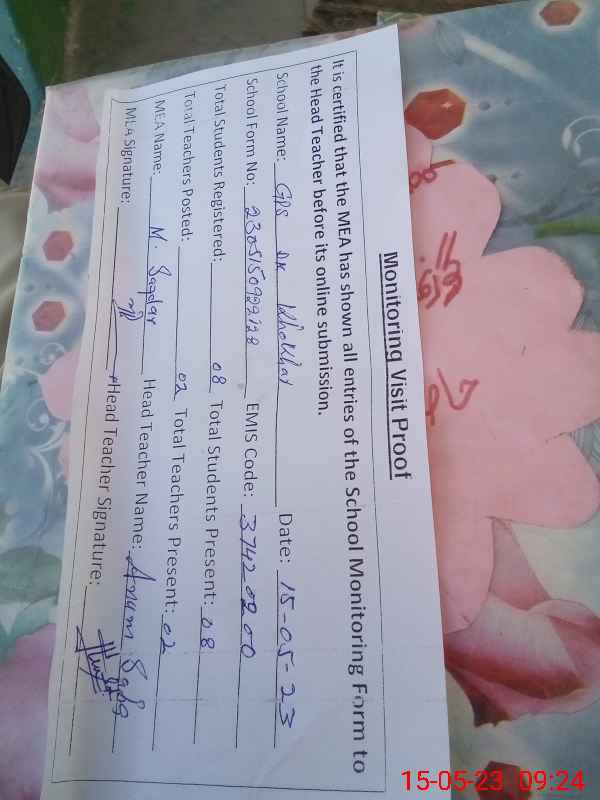 Monitoring Visit Proof
It is certified that the MEA has shown all entries of the School Monitoring Form to
the Head Teacher before its online submission.
School Name: GPS DK Khokhar Date: 15-05-23
School Form No: EMIS Code: 37420200
Total Students Registered: 08 Total Students Present: 08
Total Teachers Posted: 02 Total Teachers Present: 02
MEA Name: M Safdar Head Teacher Name: Anum
MEA Signature: Head Teacher Signature:
15-05-23 09:24